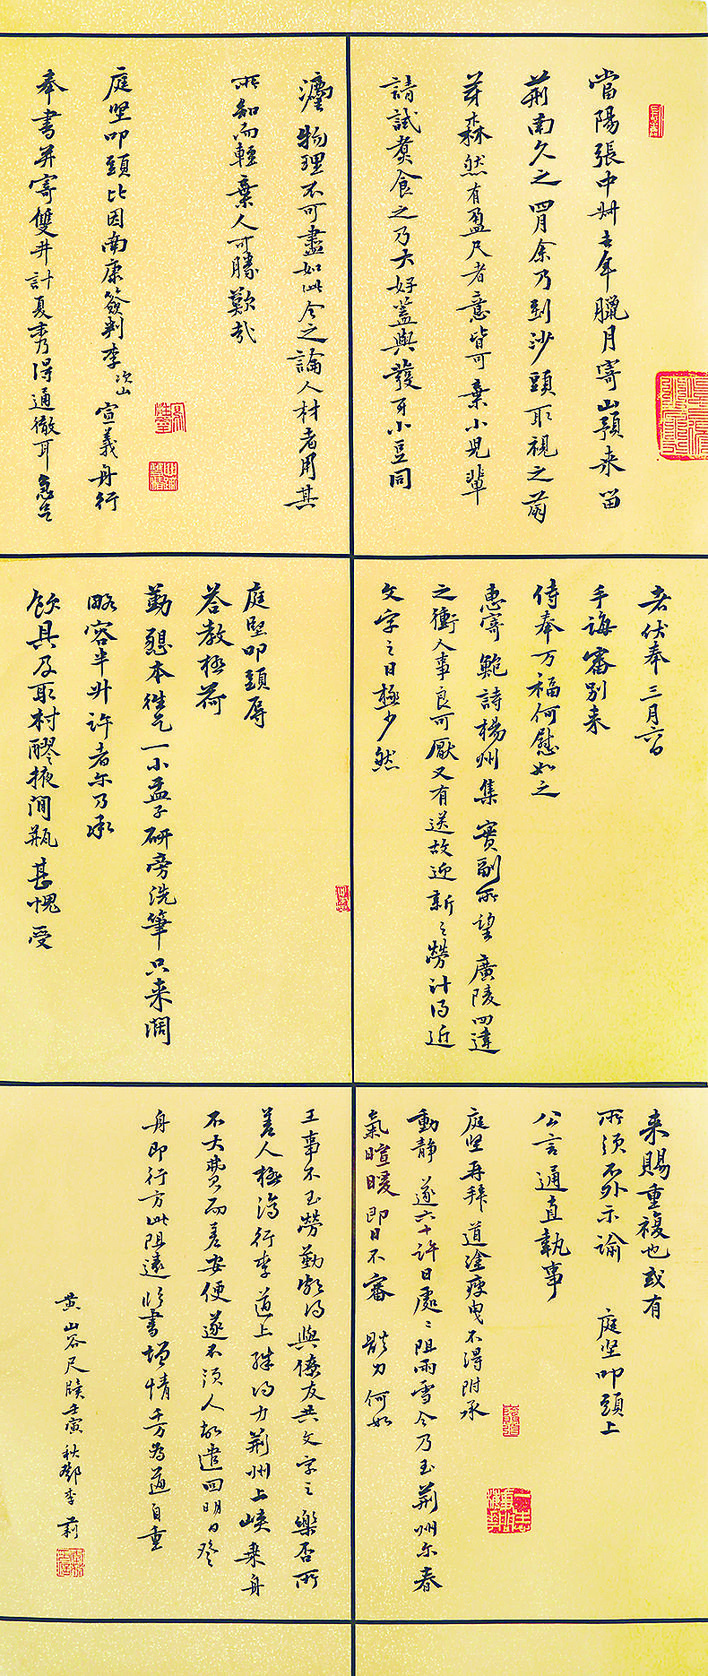 當陽張中叔去年臘月寄山預來留
荊南久之四月余乃到沙頭取視之萌
芽森然有盈尺者意皆可棄小兒輩
請試煑食之乃大好蓋與發牙小豆同
瀍物理不可盡如此今之論人材者用其
所知而輕棄人可勝歎哉
庭堅叩頭比因南康簽判李次山宣義舟行
奉書并寄雙井計夏秀得通徹耳急足
者伏奉三月六日
手誨審別來
侍奉万福何慰如之
惠寄鮑詩楊州集實副所望廣陵四達
之衝人事良可厭又有送故迎新之勞計得近
文字之日極少然
庭堅叩頭辱
荅教極荷
勤懇本從乞一小盂子研旁洗筆只來濶
略容半升許者尔乃承
飲具及取村醪掖間瓶甚愧受
來賜重複也或有
所須不外示諭 庭堅叩頭上
公言通直執事
庭堅再拜道塗瘦曳不得附承
動静遂六十許日處處阻雨雪今乃至荊州尓春
氣暄暖即日不審體力何如
王事不至勞勤㪍得與僚友共文字之樂否所
差人極濟行李道上殊得力荊州上峽乗舟
不大費而差安便遂不須人故遣回明日登
舟即行方此阻遠臨書增情千万為道自重
黄山谷尺牘壬寅秋鄧李莉